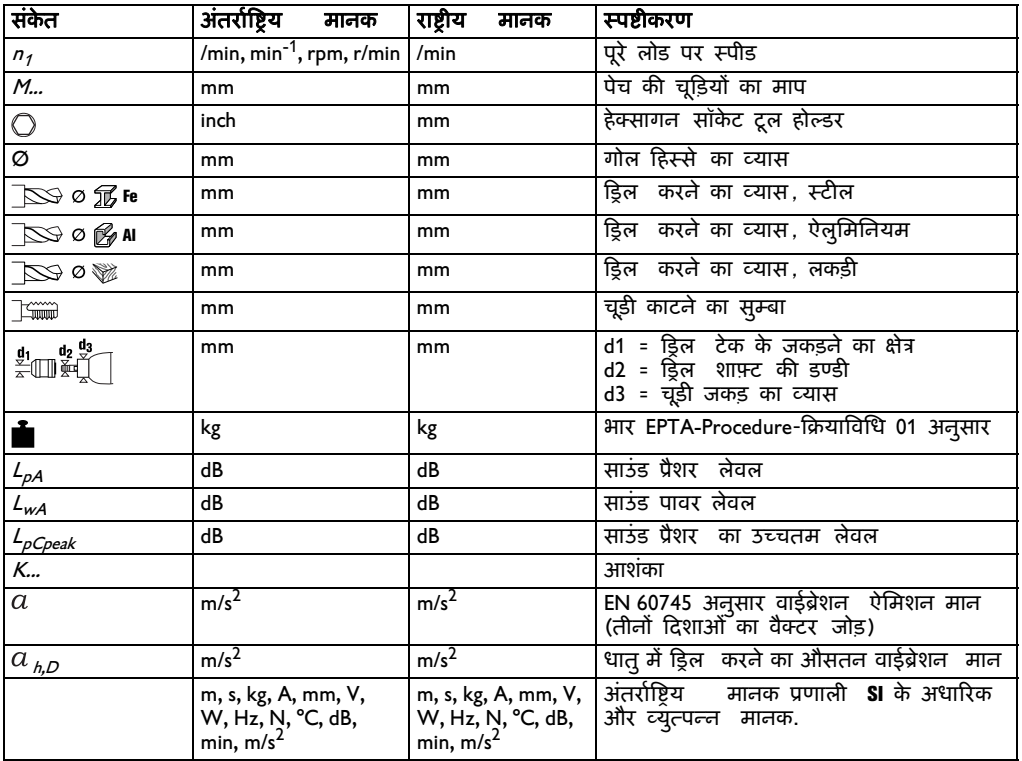 संकेत अंतर्राष्ट्रिय मानक राष्ट्रीय मानक स्पष्टीकरण
n1 /min, min-1, rpm, r/min /min पूरे लोड पर स्पीड
M... mm mm पेच की चूड़ियों का माप
inch mm हेक्सागन सॉकेट टूल होल्डर
Ø mm mm गोल हिस्से का व्यास
Ø Fe mm mm ड्रिल करने का व्यास, स्टील
Ø Al mm mm ड्रिल करने का व्यास, ऐलुमिनियम
Ø mm mm ड्रिल करने का व्यास, लकड़ी
mm mm चूड़ी काटने का सुम्बा
d1 d2 d3 mm mm d1 = ड्रिल टेक के जकड़ने का क्षेत्र
d2 = ड्रिल शाफ़्ट की डण्डी
d3 = चूड़ी जकड़ का व्यास
kg kg भार EPTA-Procedure-क्रियाविधि 01 अनुसार
LpA dB dB साउंड प्रैशर लेवल
LwA dB dB साउंड पावर लेवल
LpCpeak dB dB साउंड प्रैशर का उच्चतम लेवल
K... आशंका
a m/s2 m/s2 EN 60745 अनुसार वाईब्रेशन ऐमिशन मान
(तीनों दिशाओं का वैक्टर जोड़)
a h,D m/s2 m/s2 धातु में ड्रिल करने का औसतन वाईब्रेशन मान
m, s, kg, A, mm, V, m, s, kg, A, mm, V, अंतर्राष्ट्रिय मानक प्रणाली SI के अधारिक
W, Hz, N, °C, dB, W, Hz, N, °C, dB, और व्युत्पन्न मानक.
min, m/s2 min, m/s2